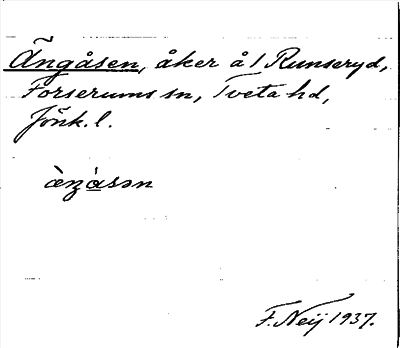 Ängåsen, åker å 1 Runseryd,
Forserums sn, Tveta hd,
Jönk. l.
àŋåsən
F. Neij 1937.